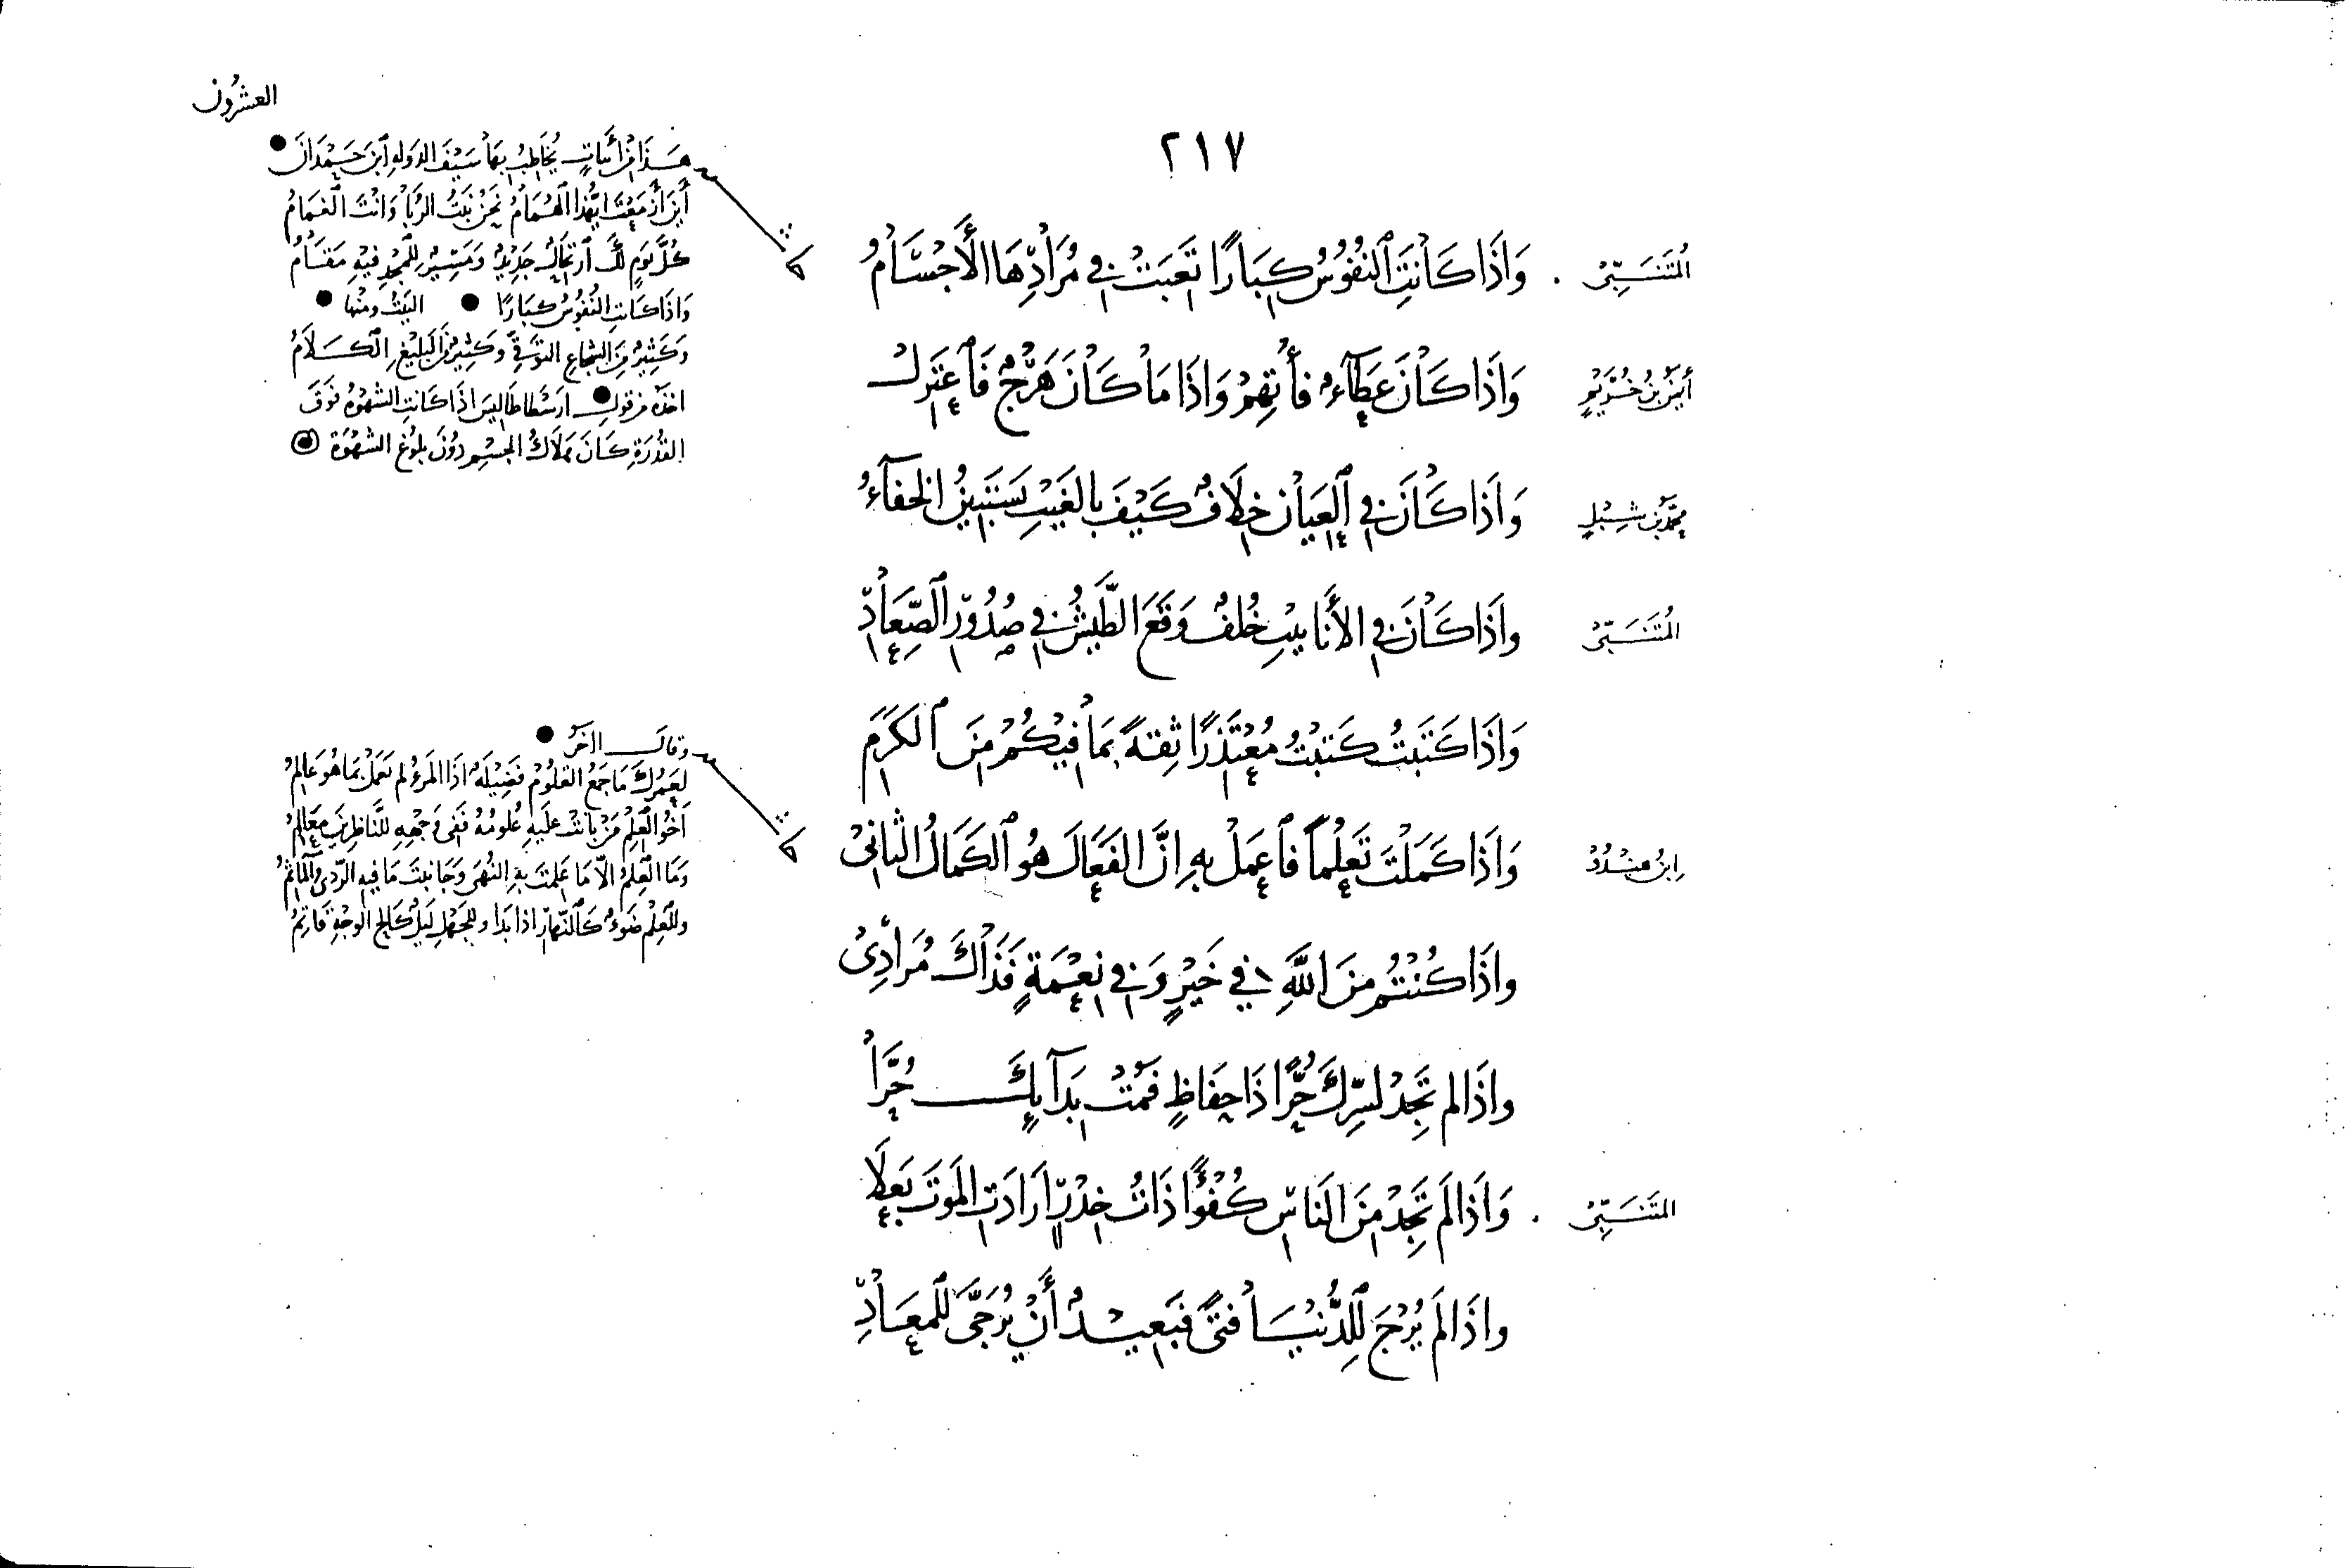 العشرون
٢١٧
المُتَنَبِّيْ . وَاَذَا كَانَتِ ٱلنفُوْسُ كِبَارًا تَعَبَتْ فِي مُرَادِهَا الأَجْسَامُ
أيمَنُ بنُ خُرَيْمٍ وَاَذَا كَانَ عَطَآءٌ فأتِهِمْ وَاَذَا مَا كَانَ هَرْجٌ فَٱعْتَزِلْ
محمَّد بن شِبْلٍ وَاَذَا كَانَ فِي ٱلعِيَانِ خِلَافٌ كَيْفَ بالغَيْبِ يَسْتَبِيْنُ الخفَآءُ
المُتَنَبِّيْ واَذَا كَانَ فِي الأَنابيبِ خُلفٌ وَقَعَ الطَّيشُ فِي صُدُوْرِ ٱلصِّعَادِ
وَاَذَا كَتَبتُ كَتَبْتُ مُعْتَذِرًا ثِقةً بمَا فِيْكُمْ مِنَ ٱلكَرَمِ
ابنُ عبْدُوْ وَاَذَا كَمَلْتَ تَعَلُّماً فاَعمَلْ بهِ اِنَّ الفَعَالَ هُو ٱلكَمَالُ الثانِيْ
واَذَا كُنْتُم مِنَ اللَّهِ فِي خَيْرٍ وَفِي نِعْمَةٍ فَذَاكَ مُرَادِيْ
واَذَا لم تَجِدْ لسِّرِكَ حُرًّا ذَا حِفَاظٍ فَمُتْ بدَآئِكَ حُرَّا
المتَنَبِّيْ . وَاَذَا لَم تَجِدْ مِنَ النَاسِ كُفْؤًا ذَاتُ خِدْرٍ اَرَادَتِ المَوتَ بَعْلَا
واَذَا لَم يُرْجَ لِلدُّنْيَا فتًى فبَعِيْدٌ أَنْ يُرَجَّى لِلمعَادِ
هَذَا مِنْ أَبْيَاتٍ يُخَاطِبُ بِهَا سَيْفَ الدَولهِ ابْنَ حَمْدَانَ
أَينَ أَزمَعْتَ ايُّهذا الهُمَامُ نَحنُ نَبتُ الرُبَا وَانْتَ الغَمَامُ
كُلَّ يَومٍ لَكَ ٱرتحَالٌ جَدْيدٌ وَمَسِيْرٌ لِلمَجْدِ فِيْهِ مَقَامُ
وَاذَا كَانت النُفُوسُ كِبَارًا البَيْتُ ومنْها
وَكَثِيْرٌ مِنَ الشُجَاعِ التوَقِّي وكَثِيْرٌ مِنَ البَلِيْغِ الكَلَامُ
اخذَهُ من قولِ ارَسْطاطَاليسَ اذَا كَانت الشهْوَةُ فَوقَ
القُدْرَةِ كَانَ هَلاَكُ الجِسْمِ دُوْنَ بلوغِ الشهْوَةِ
وقالَ الآخَرُ
لعَمرُكَ مَا جَمْعُ العُلوُمْ فَضِيْلَةٌ اذَا المَرءُ لم يَعمَلْ بمَا هُوَ عَالِمُ
اَخُو العِلْمِ مَنْ بَانَتْ عَلَيهِ عُلومُهُ فَفِى وَجْهِهِ للنَّاظِرِينَ مَعَالِمُ
وَمَا العِلمُ الّا مَا عَلمْتَ بهِ النُهَى وَجَانبتَ مَا فيهِ الرّدى والمَآثمُ
وللعِلْمِ ضَوءٌ كَالنّهارِ اذا بَدَا وللجَهْلِ لَيلٌ كَالحُ الوجْهِ قَاتِمُ